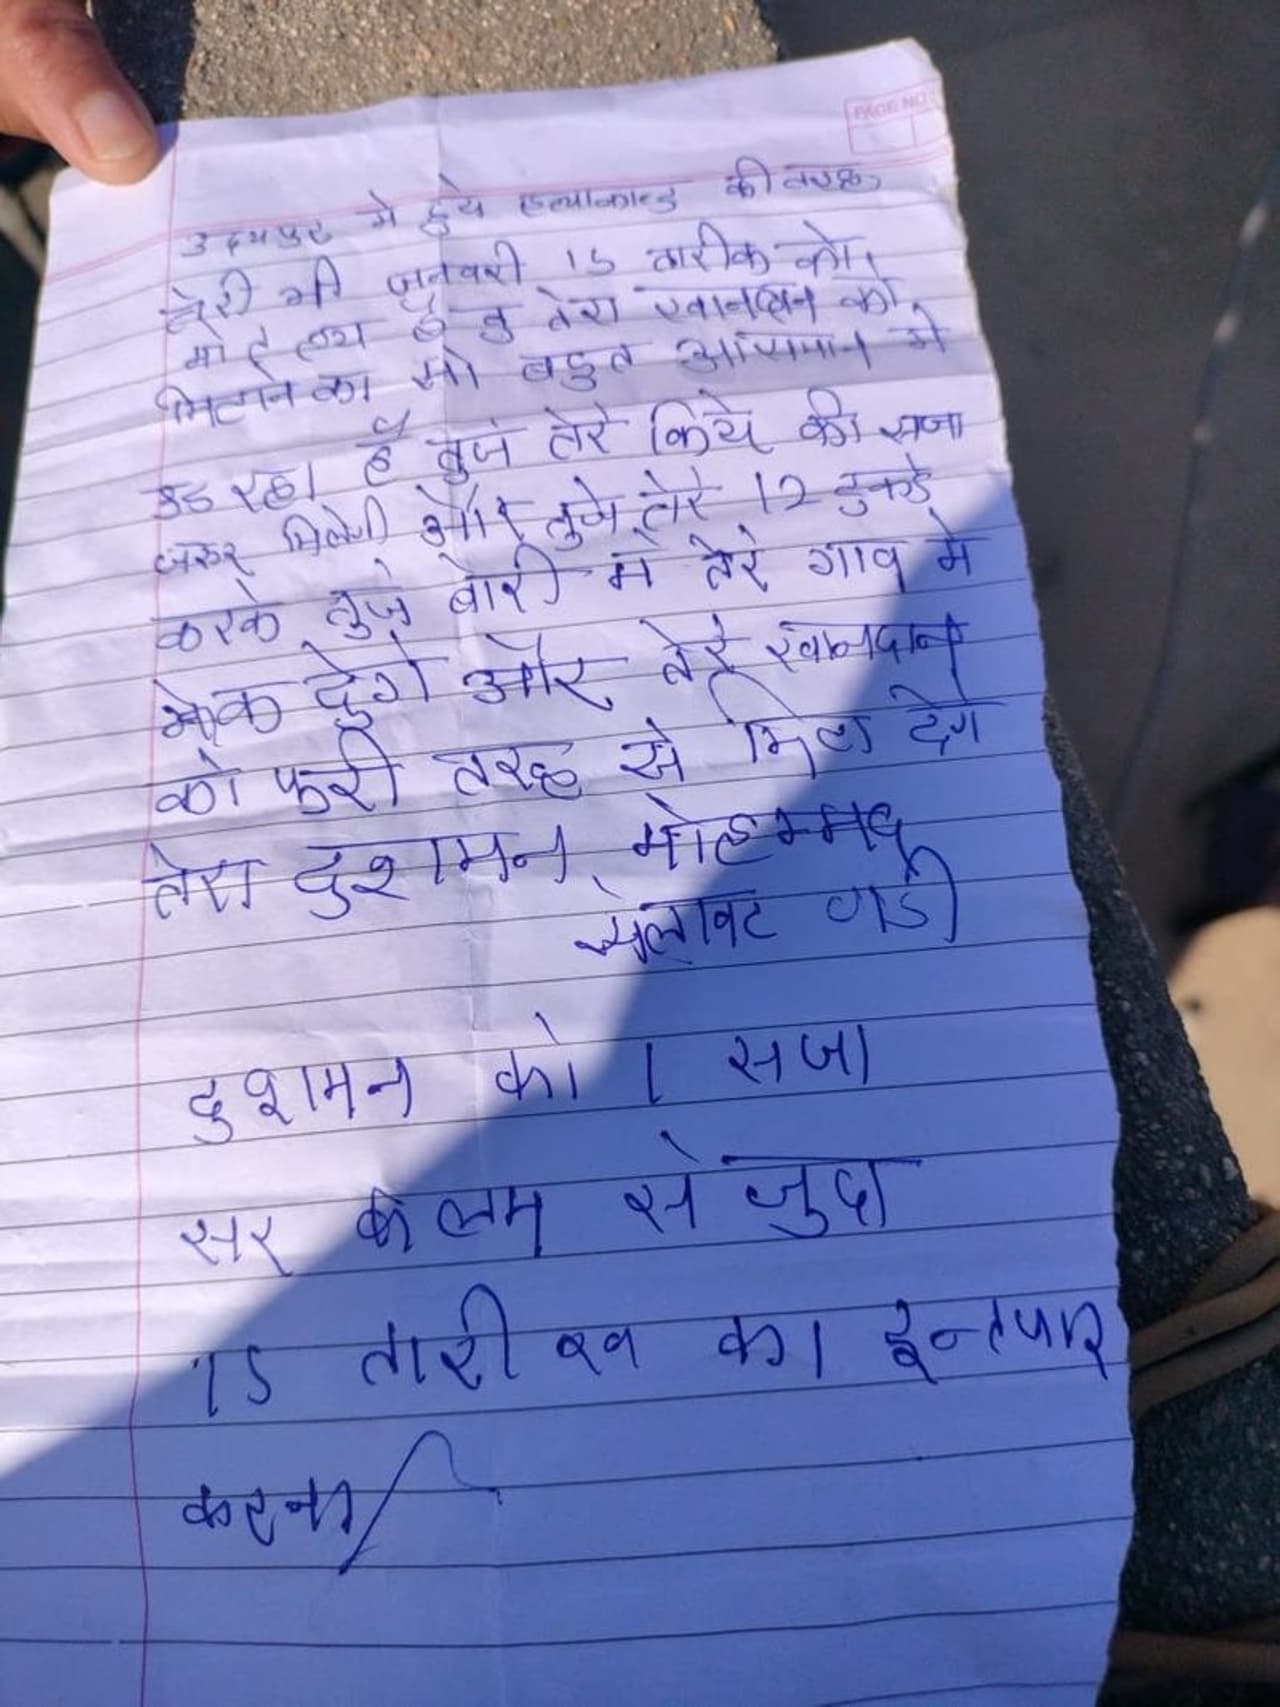 PAGE NO
उदयपुर मे हुये हत्याकान्ड की तरह
तेरी भी जनवरी 15 तारीक को
है तु तेरा खानदान को
मिटाने का बहुत आसमान मे
उड रहा है तुजे तेरे किये की सजा
जरुर मिलेगी और तुजे तेरे 12 टुकडे
करके तुजे बोरी मे तेरे गाव मे
फेक देगे और तेरे खानदान
को फुरी तरह से मिटा देगे
तेरा दुशमन मोहम्मद
सेलावट वाडी
दुशमन को 1 सजा
सर कलम से जुदा
15 तारीख का इन्तजार
करना